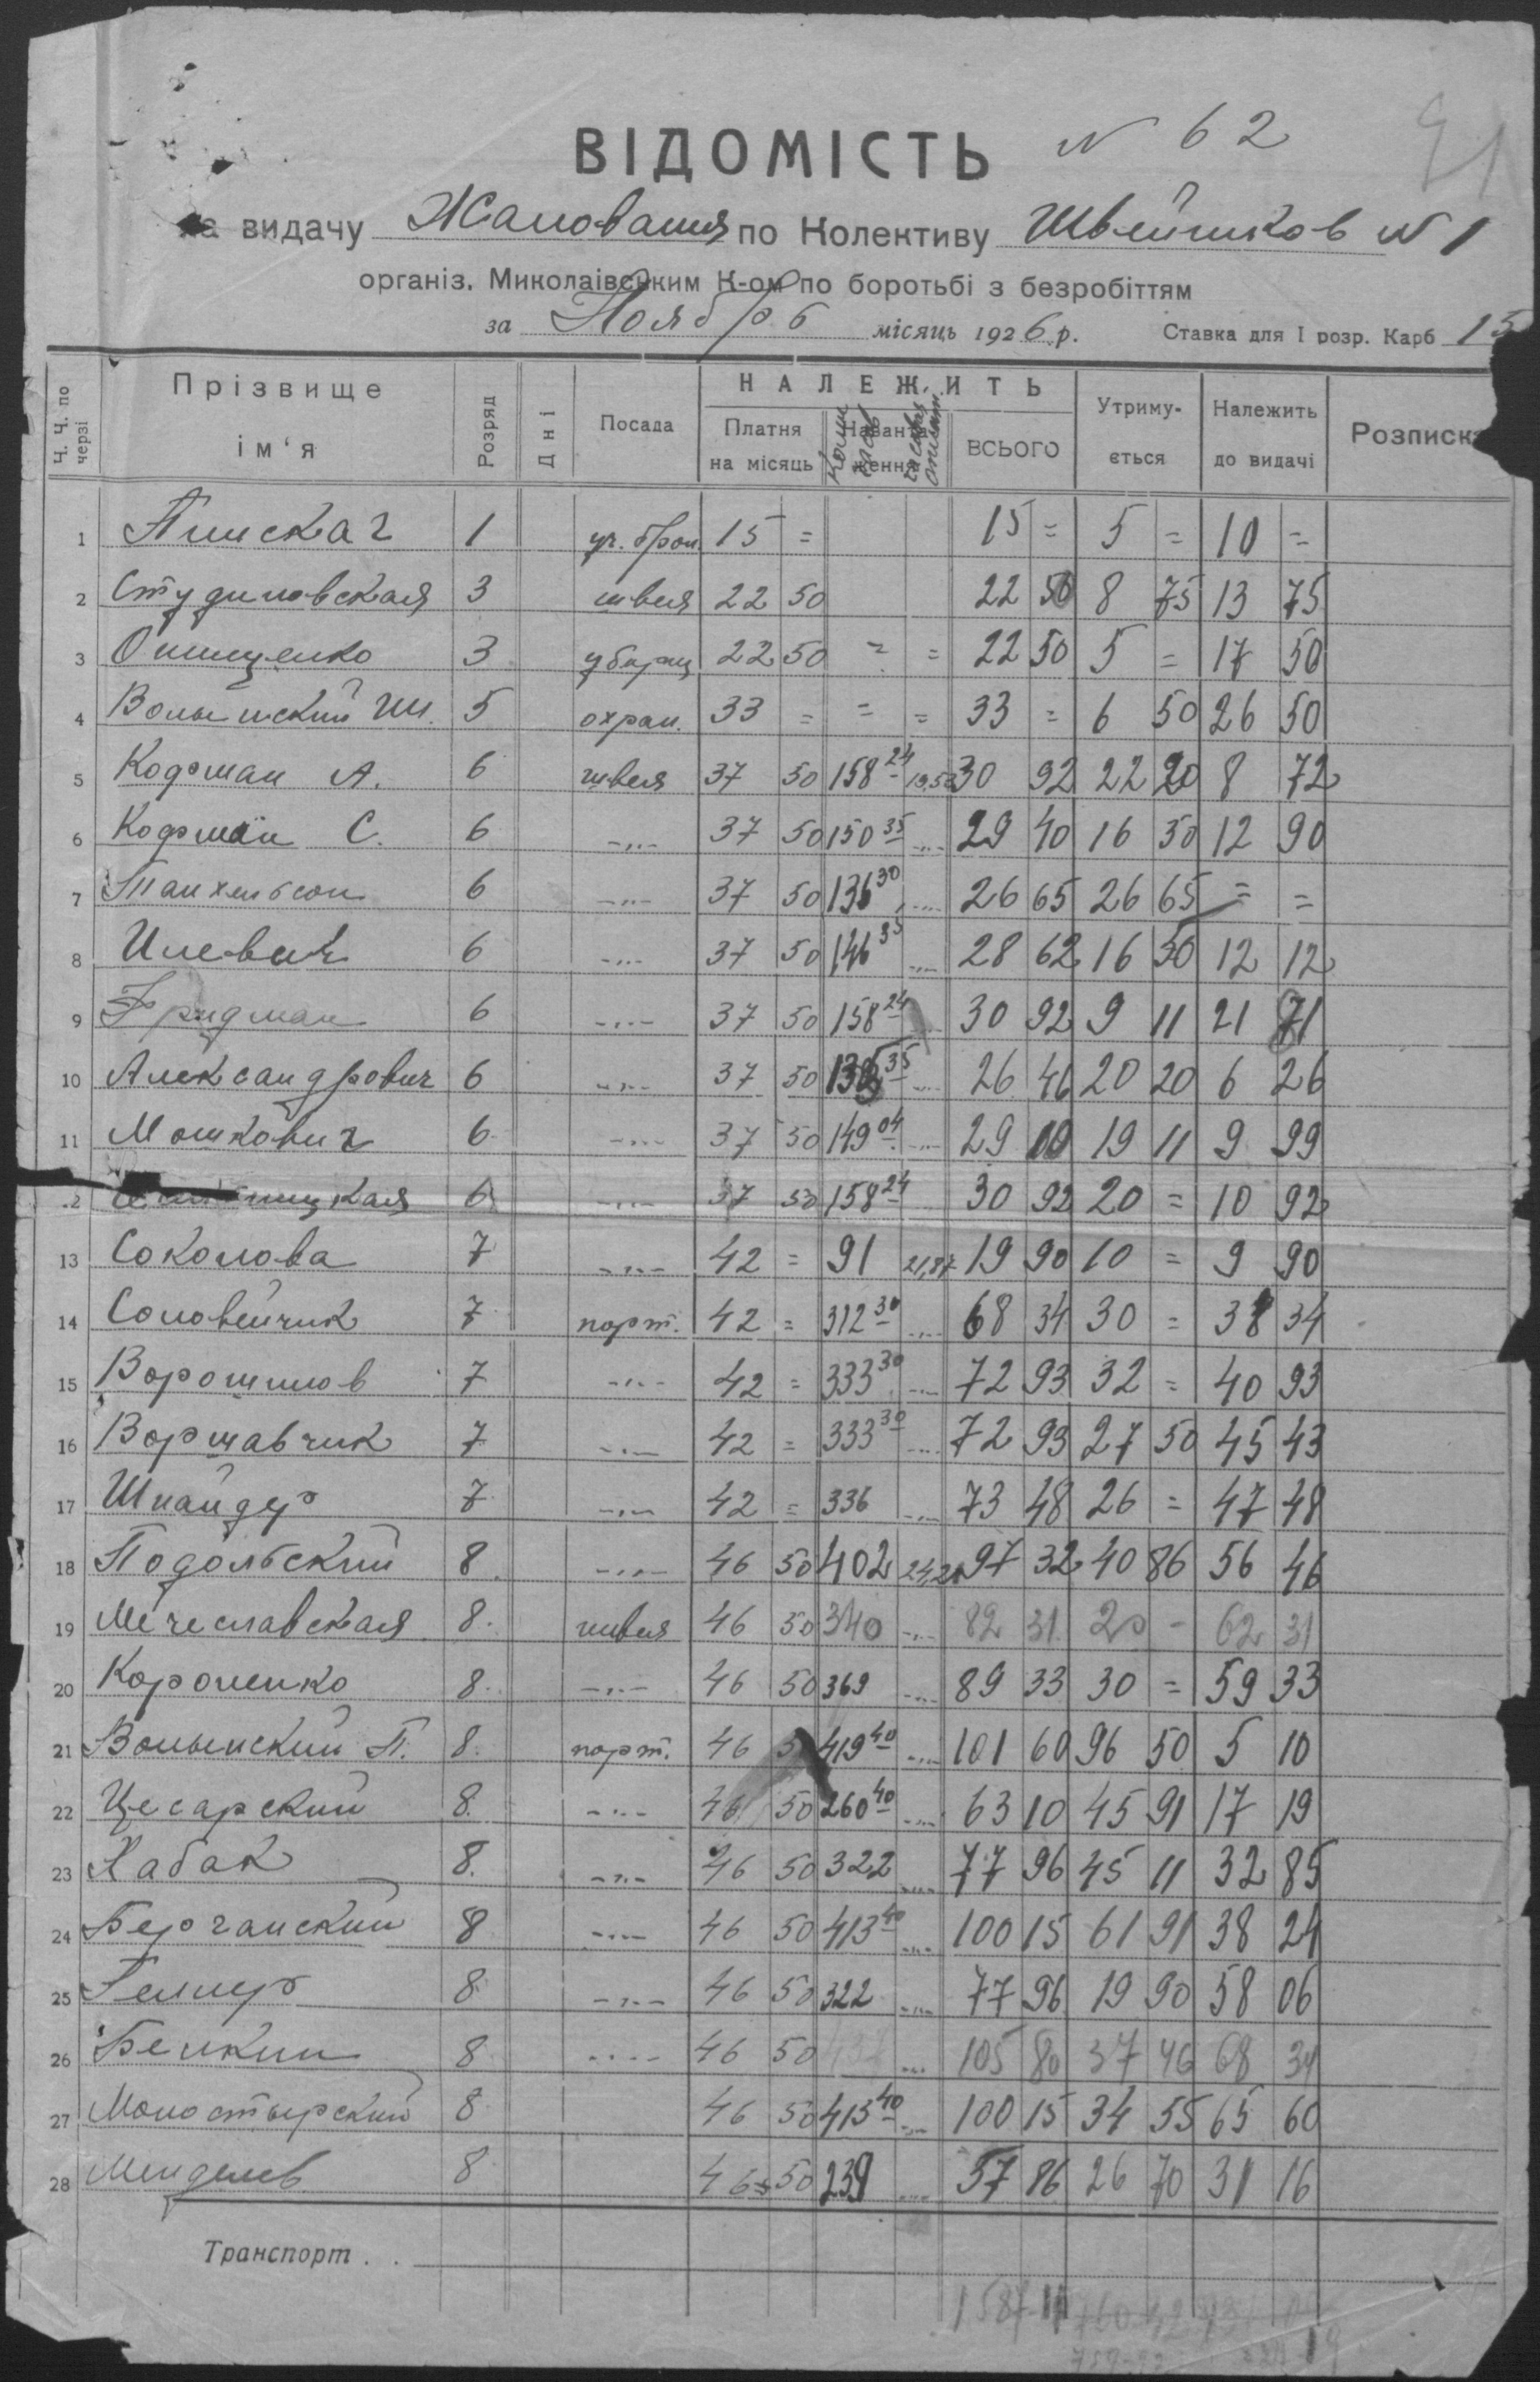 ВІДОМІСТЬ N 62
на видачу Жалования по Колективу Швейников N 1
організ. Миколаівським К-ом по боротьбі з безробіттям
за Ноябрь місяць 1926 р. Ставка для I розр. Карб 15
Ч. Ч. по черзі Прізвище ім‘я Розряд Дні Посада НАЛЕЖИТЬ Платня на місяць Навантаження ВСЬОГО Утримується Належить до видачі Розписка
1 1 15 = 15 = 5 = 10 =
2 Студиловская 3 швея 22 50 22 50 8 75 13 75
3 Онищенко 3 уборщ 22 50 = = 22 50 5 = 17 50
4 Волынский Ш. 5 охран. 33 = = = 33 = 6 50 26 50
5 Кофман А. 6 швея 37 50 158 24 19,53 30 92 22 20 8 72
6 Кофман С. 6 -„- 37 50 150 35 -„- 29 40 16 50 12 90
7 Танхельсон 6 -„- 37 50 136 30 -„- 26 65 26 65 = =
8 6 -„- 37 50 146 35 -„- 28 62 16 50 12 12
9 Фридман 6 -„- 37 50 158 24 30 92 9 11 21 71
10 Александрович 6 -„- 37 50 135 35 -„- 26 46 20 20 6 26
11 Мошкович 6 -„- 37 50 149 04 -„- 29 10 19 11 9 99
12 6 -„- 37 50 158 24 30 92 20 = 10 92
13 Соколова 7 -„- 42 = 91 21,87 19 90 10 = 9 90
14 Соловейчик 7 порт. 42 = 312 30 -„- 68 34 30 = 38 34
15 Ворошилов 7 -„- 42 = 333 30 -„- 72 93 32 = 40 93
16 Воршавчик 7 -„- 42 = 333 30 -„- 72 93 27 50 45 43
17 Шнайдер 7 -„- 42 = 336 -„- 73 48 26 = 47 48
18 Подольский 8 -„- 46 50 402 24,21 97 32 40 86 56 46
19 Мечеславская 8 швея 46 50 340 -„- 82 31 20 - 62 31
20 Короленко 8 -„- 46 50 369 -„- 89 33 30 = 59 33
21 Волынский П. 8 порт. 46 5 419 40 -„- 101 60 96 50 5 10
22 Цесарский 8 -„- 46 50 260 40 -„- 63 10 45 91 17 19
23 Кабак 8 -„- 46 50 322 -„- 77 96 45 11 32 85
24 Берчанский 8 -„- 46 50 413 40 -„- 100 15 61 91 38 24
25 Геллер 8 -„- 46 50 322 -„- 77 96 19 90 58 06
26 Белкин 8 -„- 46 50 437 -„- 105 80 37 46 68 34
27 Монастырский 8 46 50 413 40 -„- 100 15 34 55 65 60
28 Менделев 8 46 50 239 -„- 57 86 26 70 31 16
Транспорт . .
1587-11